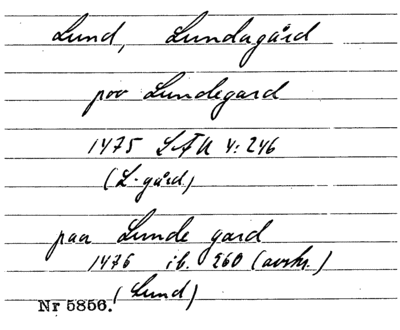 Lund, Lundagård
poo Lundegard
1475 LÄU 4:246
(L-gård)
paa Lunde gard
1476 ib. 260 (avskr.)
(Lund)
Nr 5856.